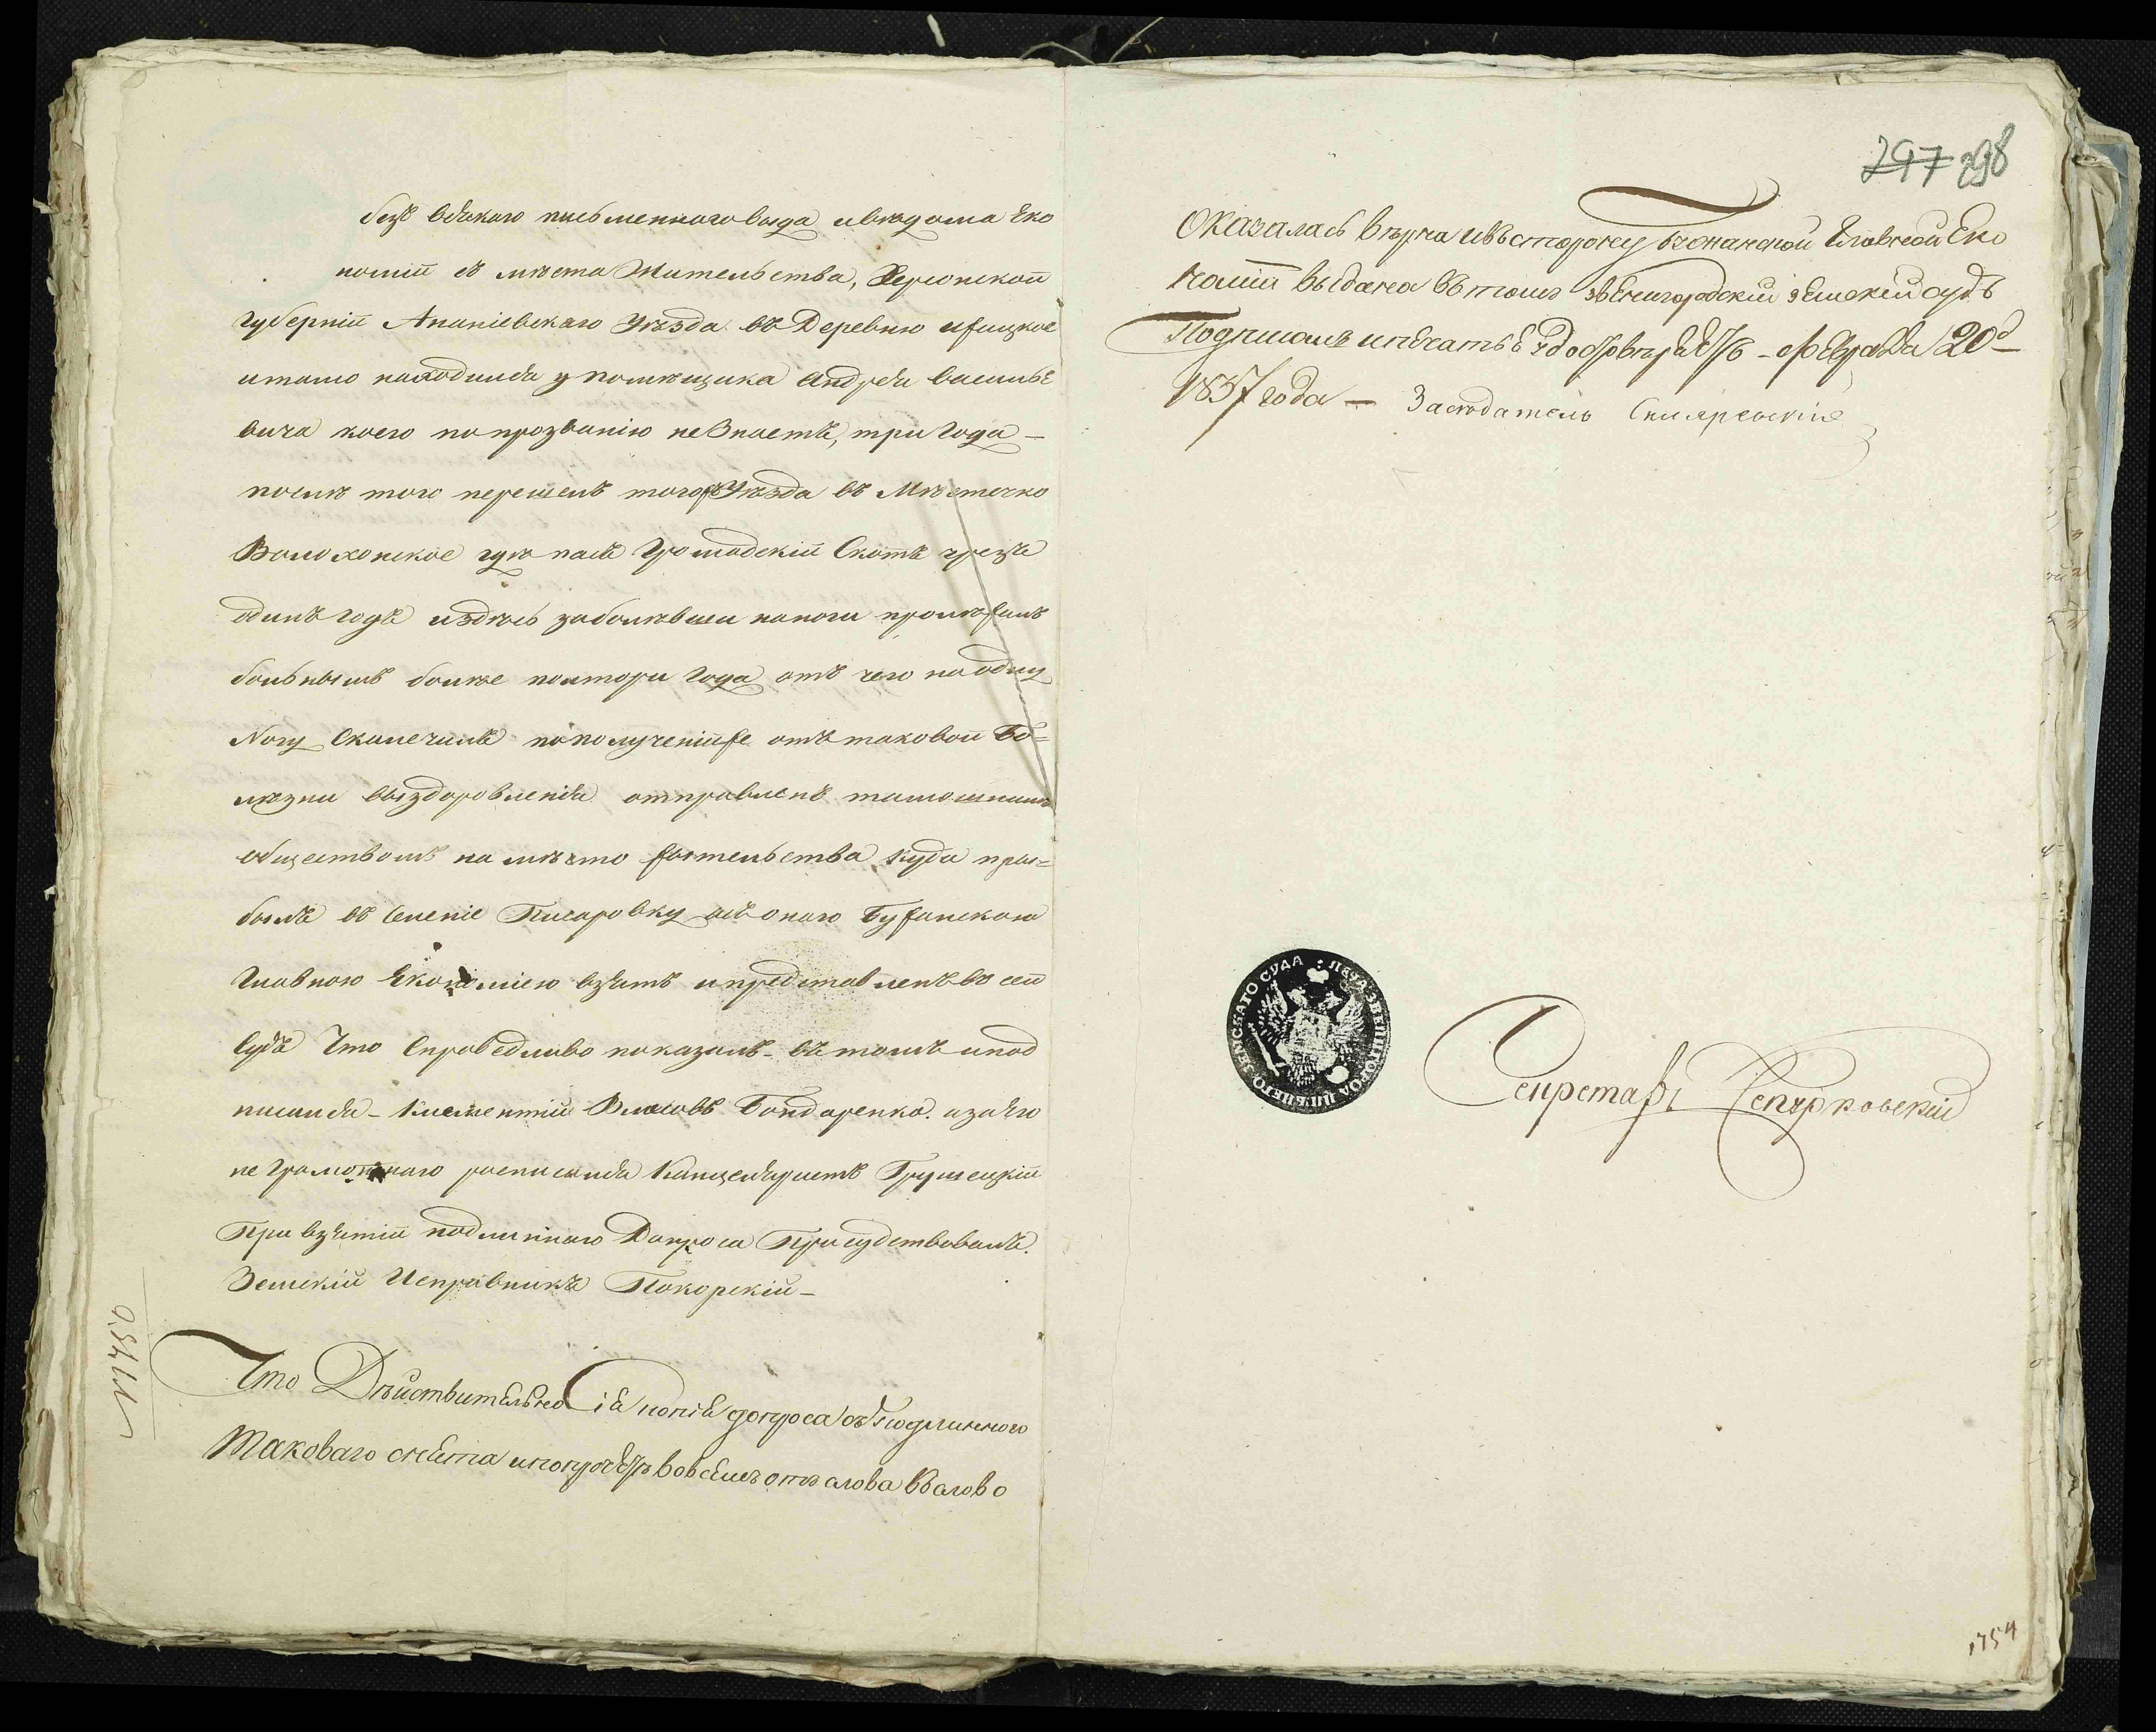 безъ всѧкаго письменнаго вида и вѣдома Эко
номіи съ мѣста Жительства, Херсонской
Губерніи Ананіевскаго Уѣзда въ Деревню
итамо находился у помѣщика Андрея Василье
вича коего по прозванію не Знаетъ, три Года –
послѣ того перешелъ тогожъ Уѣзда въ Мѣстечко
Валохонское гдѣ пасъ Громадскій Скотъ чрезъ
одинъ годъ издѣсь заболѣвши на ноги пролѣжалъ
больнымъ болѣе полтори Года отъ чего на одну
Ногу Скалечилъ по полученіи же отъ таковой Бо=
лѣзни выздоровленія отправленъ тамошнимъ
обществомъ на мѣсто жительства куда при=
былъ въ Селеніе Писаровку а съ онаго Бужанскою
Главною Экономіею взятъ и представленъ въ сей
Судъ Что Справедливо показалъ – въ томъ и под
писался – Климентій Власовъ Бондаренко. а за его
не Грамотнаго росписался Канцеляристъ Грушецкій
При взятіи подлиннаго Допроса Присудствовалъ.
Земскій Исправникъ Покорскій –
Что Дѣйствительно Сія копія допроса съ подлинного
Таковаго снѣта во всемъ отъ слова въ слово
297 298
Оказалась вѣрна и въ сторону Бужанской Главной Эко
номіи выдана въ томъ Звенигородскій Земскій судъ
Подписомъ и печатью – Февраля 20д
1837 года – Заседатель Скляревскій
ПЕЧ. ЗВЕНИГОРОДСКАГО ЗЕМСКАГО СУДА
Секретарь
1754